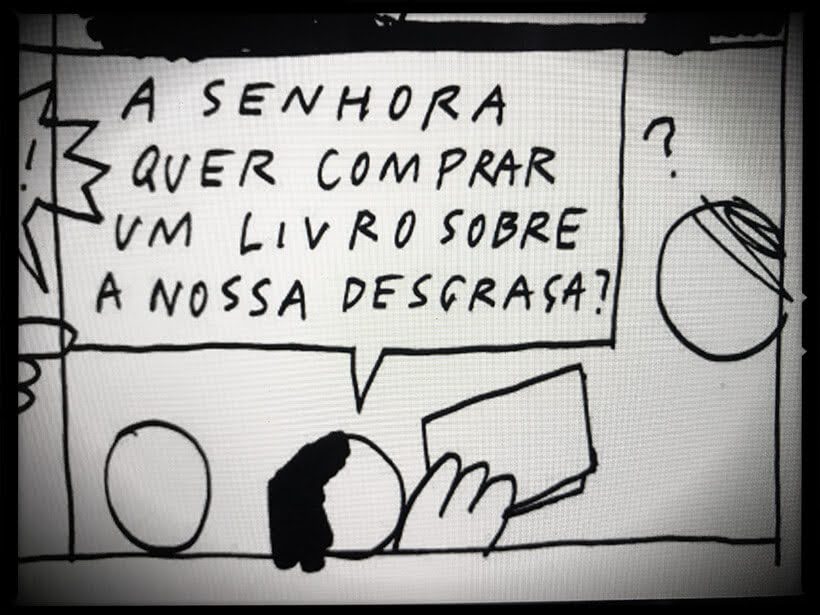 !
A SENHORA
QUER COMPRAR
UM LIVRO SOBRE
A NOSSA DESGRAÇA?
?